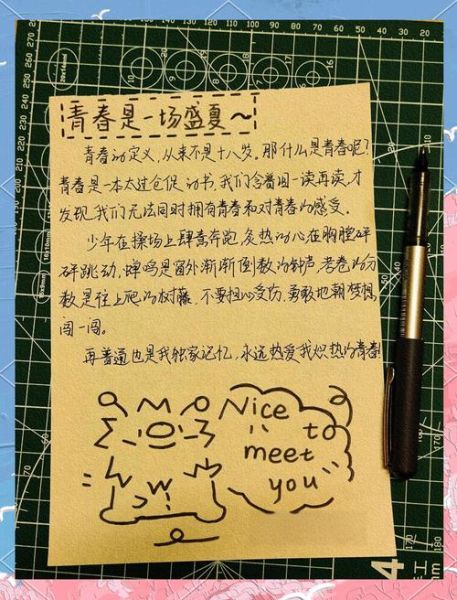 青春是一场盛夏~
青春的定义，从来不是十八岁。那什么是青春呢？
青春是一本太过仓促的书，我们含着泪一读再读，才
发现，我们无法同时拥有青春和对青春的感受。
少年在操场上肆意奔跑，炙热的心在胸膛砰
砰跳动，蝉鸣是窗外渐渐倒数的钟声，考卷的分
数是往上爬的树藤，不要担心受伤，勇敢地朝梦想
闯一闯。
再普通也是我独家记忆，永远热爱我炽热的青春！
Nice
to
meet
you